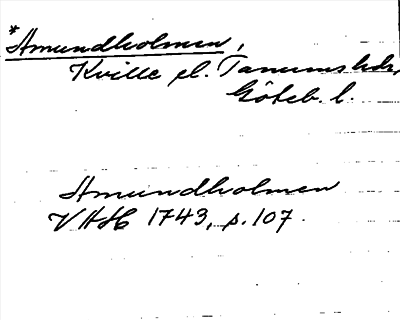 *Amundholmen,
Kville el. Tanums hdr,
Göteb. l.
Amundholmen
VAH 1743, p. 107.